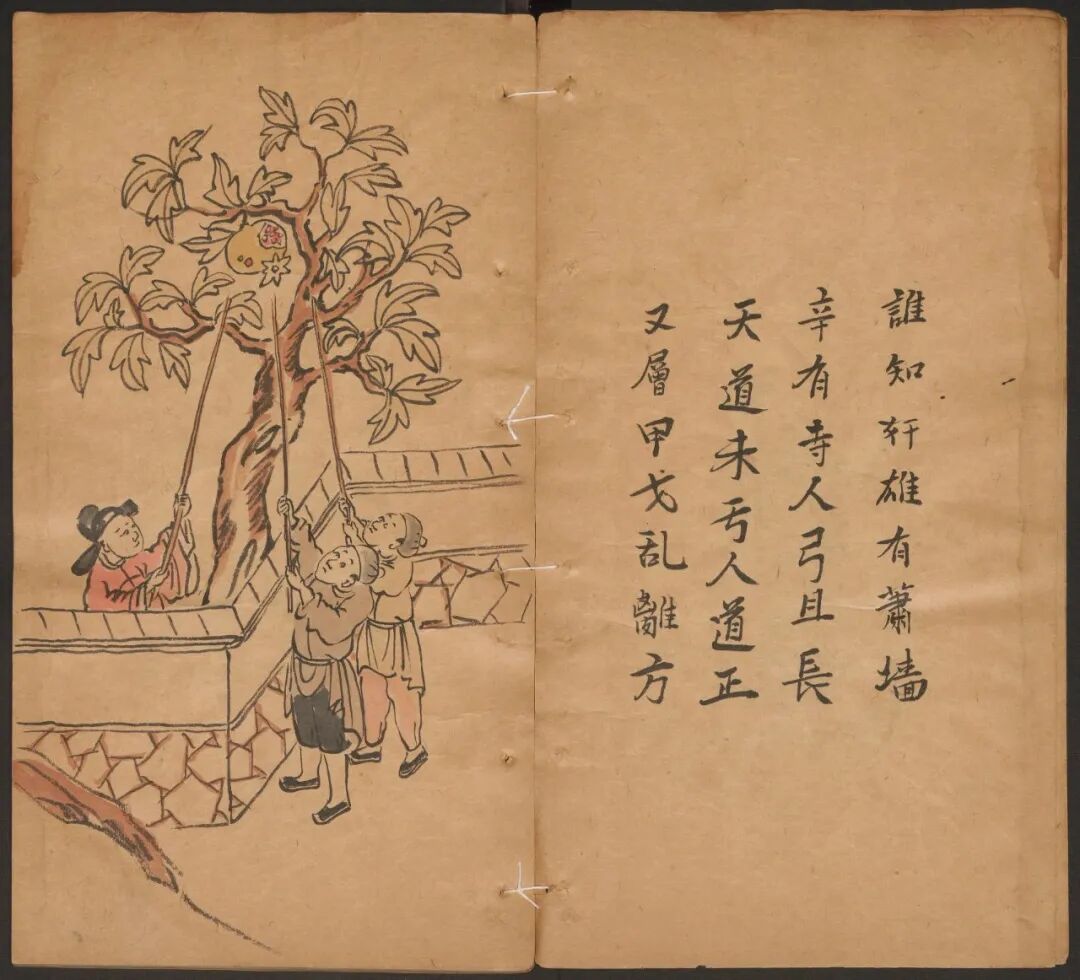 誰知軒雄有蕭墙
辛有寺人弓且長
天道未亏人道正
又層甲戈乱離方